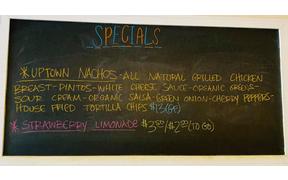 SPECIALS
* UPTOWN NACHOS - ALL NATURAL GRILLED CHICKEN
BREAST - PINTOS - WHITE CHEESE SAUCE - ORGANIC GREENS -
SOUR CREAM - ORGANIC SALSA - GREEN ONION - CHERRY PEPPERS -
HOUSE FRIED TORTILLA CHIPS $13 (GF)
* STRAWBERRY LIMONADE $3.00/$2.00 (TO GO)